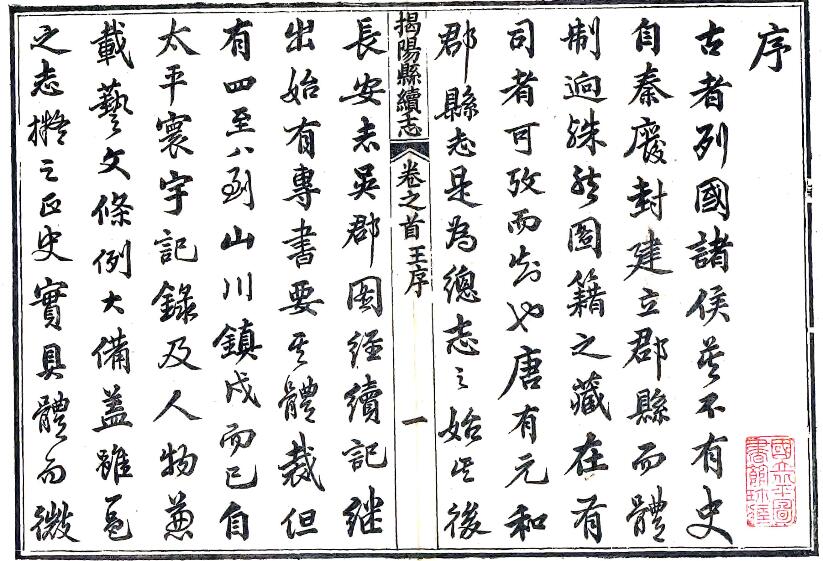 序
古者列國諸侯莫不有史
自秦廢封建立郡縣而體
制迥殊然圖籍之藏在有
司者可攷而知也唐有元和
郡縣志是為總志之始其後
揭陽縣續志 卷之首 王序 一
長安志吳郡圖經續記継
出始有專書要其體裁但
有四至八到山川鎮戍而已自
太平寰宇記錄及人物兼
載藝文條例大備蓋雖邑
之志擬之正史實具體而微